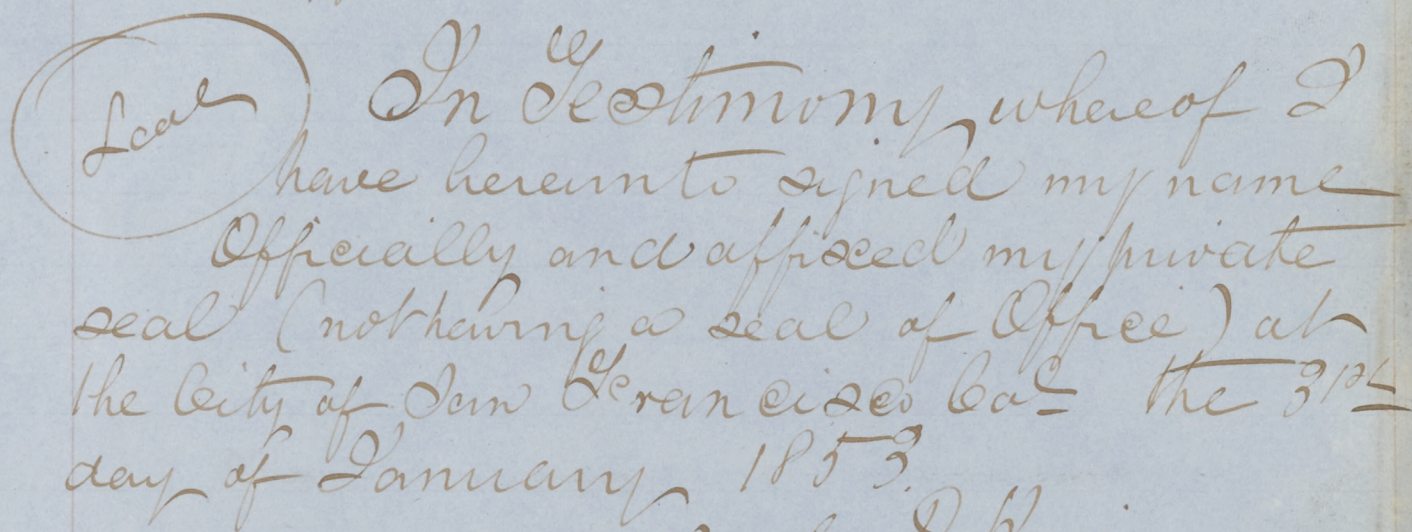 Seal
In Testimony whereof I
have hereunto signed my name
Officially and affixed my private
seal (not having a seal of Office) at
the City of San Francisco Co<sup>a</sup> the 31st
day of January 1853.